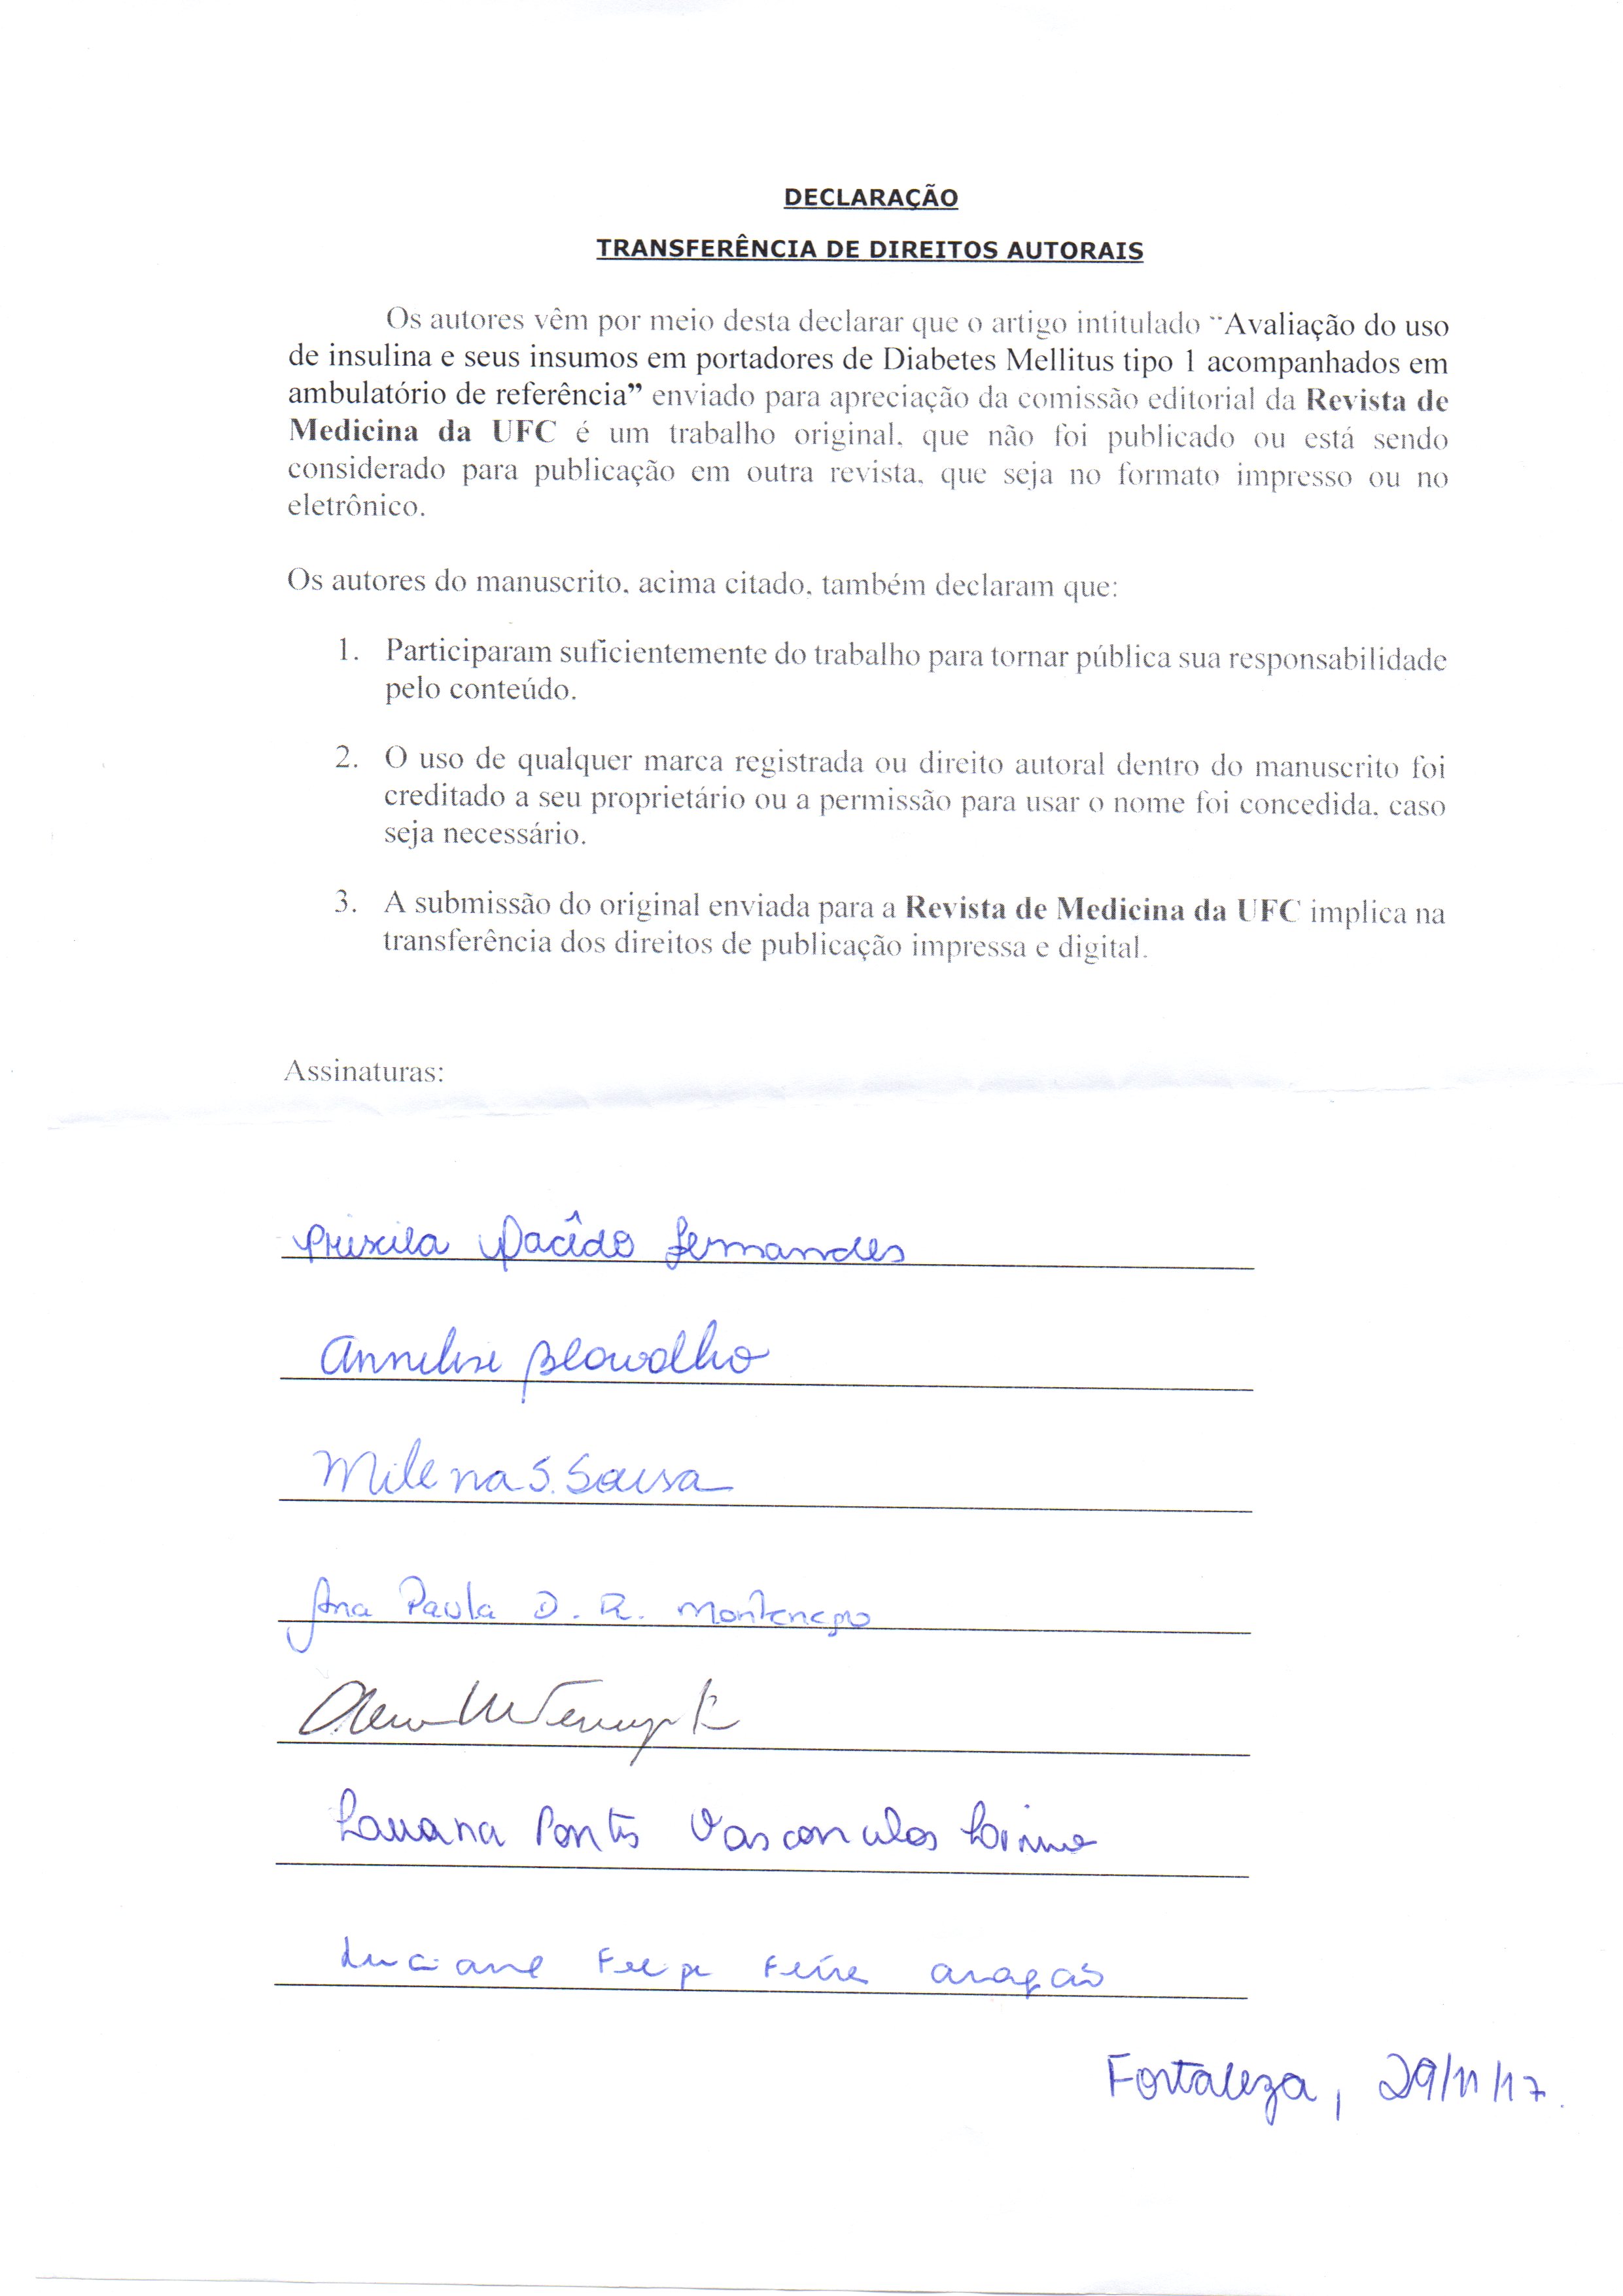 DECLARAÇÃO
TRANSFERÊNCIA DE DIREITOS AUTORAIS
Os autores vêm por meio desta declarar que o artigo intitulado “Avaliação do uso
de insulina e seus insumos em portadores de Diabetes Mellitus tipo 1 acompanhados em
ambulatório de referência” enviado para apreciação da comissão editorial da Revista de
Medicina da UFC é um trabalho original, que não foi publicado ou está sendo
considerado para publicação em outra revista, que seja no formato impresso ou no
eletrônico.
Os autores do manuscrito, acima citado, também declaram que:
1. Participaram suficientemente do trabalho para tornar pública sua responsabilidade
pelo conteúdo.
2. O uso de qualquer marca registrada ou direito autoral dentro do manuscrito foi
creditado a seu proprietário ou a permissão para usar o nome foi concedida, caso
seja necessário.
3. A submissão do original enviada para a Revista de Medicina da UFC implica na
transferência dos direitos de publicação impressa e digital.
Assinaturas:
Priscila Placido Fernandes
Annelise
Milena S. Sousa
Ana Paula D. R. Montenegro
Pontes Vasconcelos
Luciane Felipe Aragão
Fortaleza, 29/11/17.